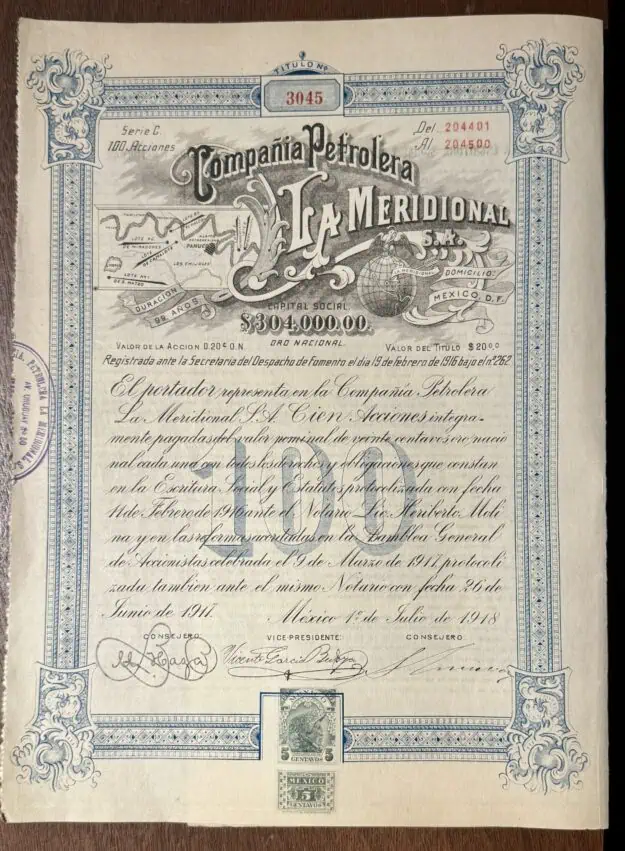 TITULO Nº
3045
Serie C.
100 Acciones
Del 204401
Al 204500
Compañia Petrolera
LA MERIDIONAL
S.A.
PANUCO
LOS CHIJOLES
DURACION
99 AÑOS
LA MERIDIONAL
DOMICILIO:
MEXICO, D.F.
CAPITAL SOCIAL
$304,000.00.
ORO NACIONAL.
VALOR DE LA ACCION 0.20¢ O.N.
VALOR DEL TITULO $20⁰⁰
Registrada ante la Secretaria del Despacho de Fomento el dia 19 de febrero de 1916 bajo el nº 262.
El portador representa en la Compañía Petrolera
La Meridional S.A. Cien Acciones integra-
mente pagadas del valor nominal de veinte centavos oro nacio
nal cada una con todos los derechos y obligaciones que constan
en la Escritura Social y Estatutos protocolizada con fecha
11 de Febrero de 1916 ante el Notario Lic. Heriberto Moli
na y en las reformas acordadas en la Asamblea General
de Accionistas celebrada el 9 de Marzo de 1917 protocoli
zada tambien ante el mismo Notario con fecha 26 de
Junio de 1917. México 1º de Julio de 1918
100
CONSEJERO
VICE-PRESIDENTE:
CONSEJERO
Vicente Garcia
CIA. PETROLERA LA MERIDIONAL, S.
AV. URUGUAY
5 CENTAVOS 5
MEXICO
5
CENTAVOS